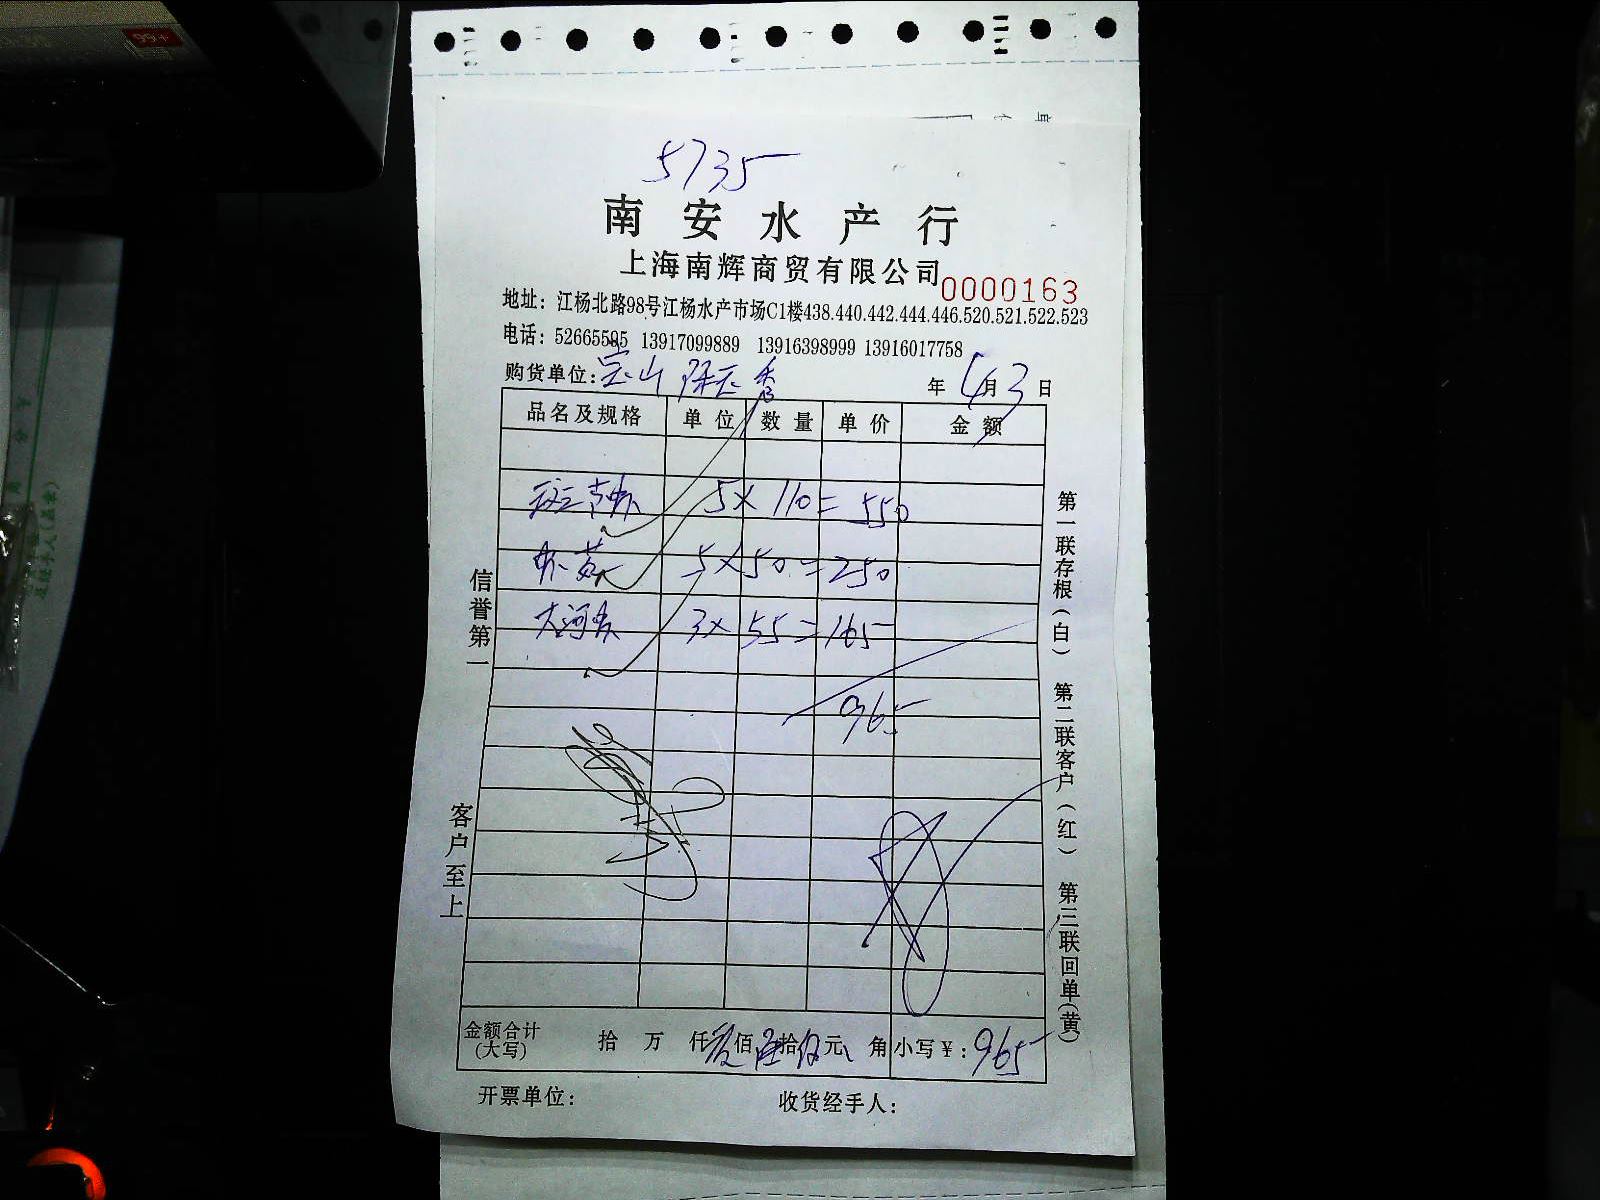 99+
5735
南安水产行
上海南辉商贸有限公司 0000163
地址：江杨北路98号江杨水产市场C1楼438.440.442.444.446.520.521.522.523
电话：52665595 13917099889 13916398999 13916017758
购货单位：宝山 年 4月 3日
品名及规格 单位 数量 单价 金额
5 × 110 = 550
5 × 50 = 250
大河虾 3 × 55 = 165
965
金额合计(大写) 拾 万 仟 玖佰 陆拾 伍元 角 小写￥：965
开票单位： 收货经手人：
信誉第一
客户至上
第一联存根(白) 第二联客户(红) 第三联回单(黄)